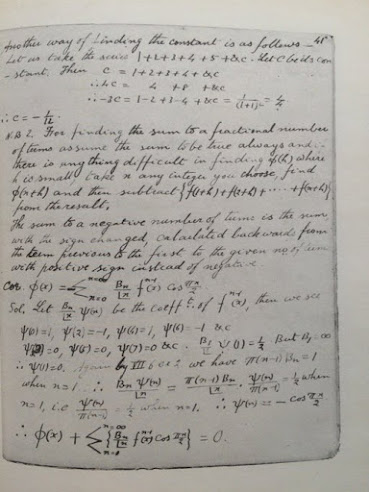 Another way of finding the constant is as follows — 41
Let us take the series 1+2+3+4+5+&c. Let C be its con
- stant. Then C = 1+2+3+4+&c
∴ 4C = 4 + 8 +&c
∴ -3C = 1-2+3-4+&c = 1/(1+1)² = 1/4
∴ C = -1/12.
N.B. 2. For finding the sum to a fractional number
of terms assume the sum to be true always and
there is any thing difficult in finding φ(h) where
h is small take n any integer you choose, find
φ(n+h) and then subtract {f(1+h)+f(2+h)+····+f(n+h)}
from the result.
The sum to a negative number of terms is the sum
with the sign changed, calculated backwards from
the term previous to the first to the given no. of terms
with positive sign instead of negative.
Cor. φ(x) = Σ_{n=0}^{n=∞} B_n/|n f^{n-1}(x) cos πn/2
Sol. Let B_n/|n ψ(n) be the coefft. of f^{n-1}(x), then we see
ψ(0)=1, ψ(2)=-1, ψ(4)=1, ψ(6)=-1 &c
ψ(3)=0, ψ(5)=0, ψ(7)=0 &c. B_1/|1 ψ(1)=1/2. But B_1=∞
∴ ψ(1)=0. Again by III 6 we have π(n-1)B_n=1
when n=1. ∴ B_n ψ(n)/|n = π(n-1)B_n/|n · ψ(n)/π(n-1) = 1/2 when
n=1, i.e. ψ(n)/π(n-1) = 1/2 when n=1. ∴ ψ(n) = -cos πn/2
∴ φ(x) + Σ_{n=0}^{n=∞} {B_n/|n f^{n-1}(x) cos πn/2} = 0.